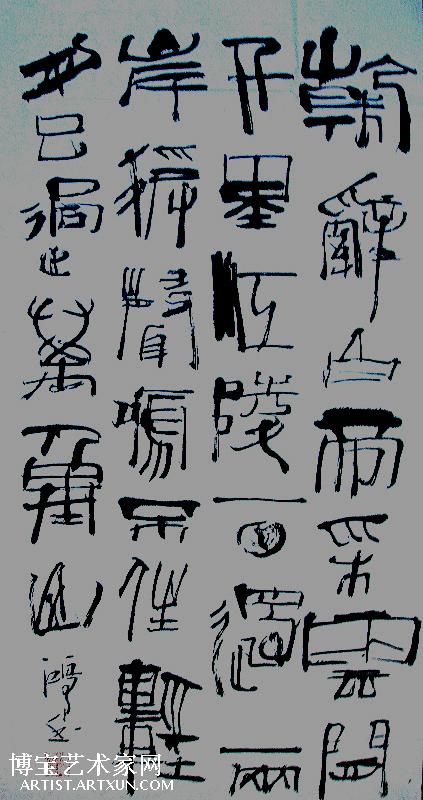 朝辭白帝采雲間
千里江陵一日還兩
岸猿聲啼不住輕
舟已過萬重山
博宝艺术家网
ARTIST.ARTXUN.COM